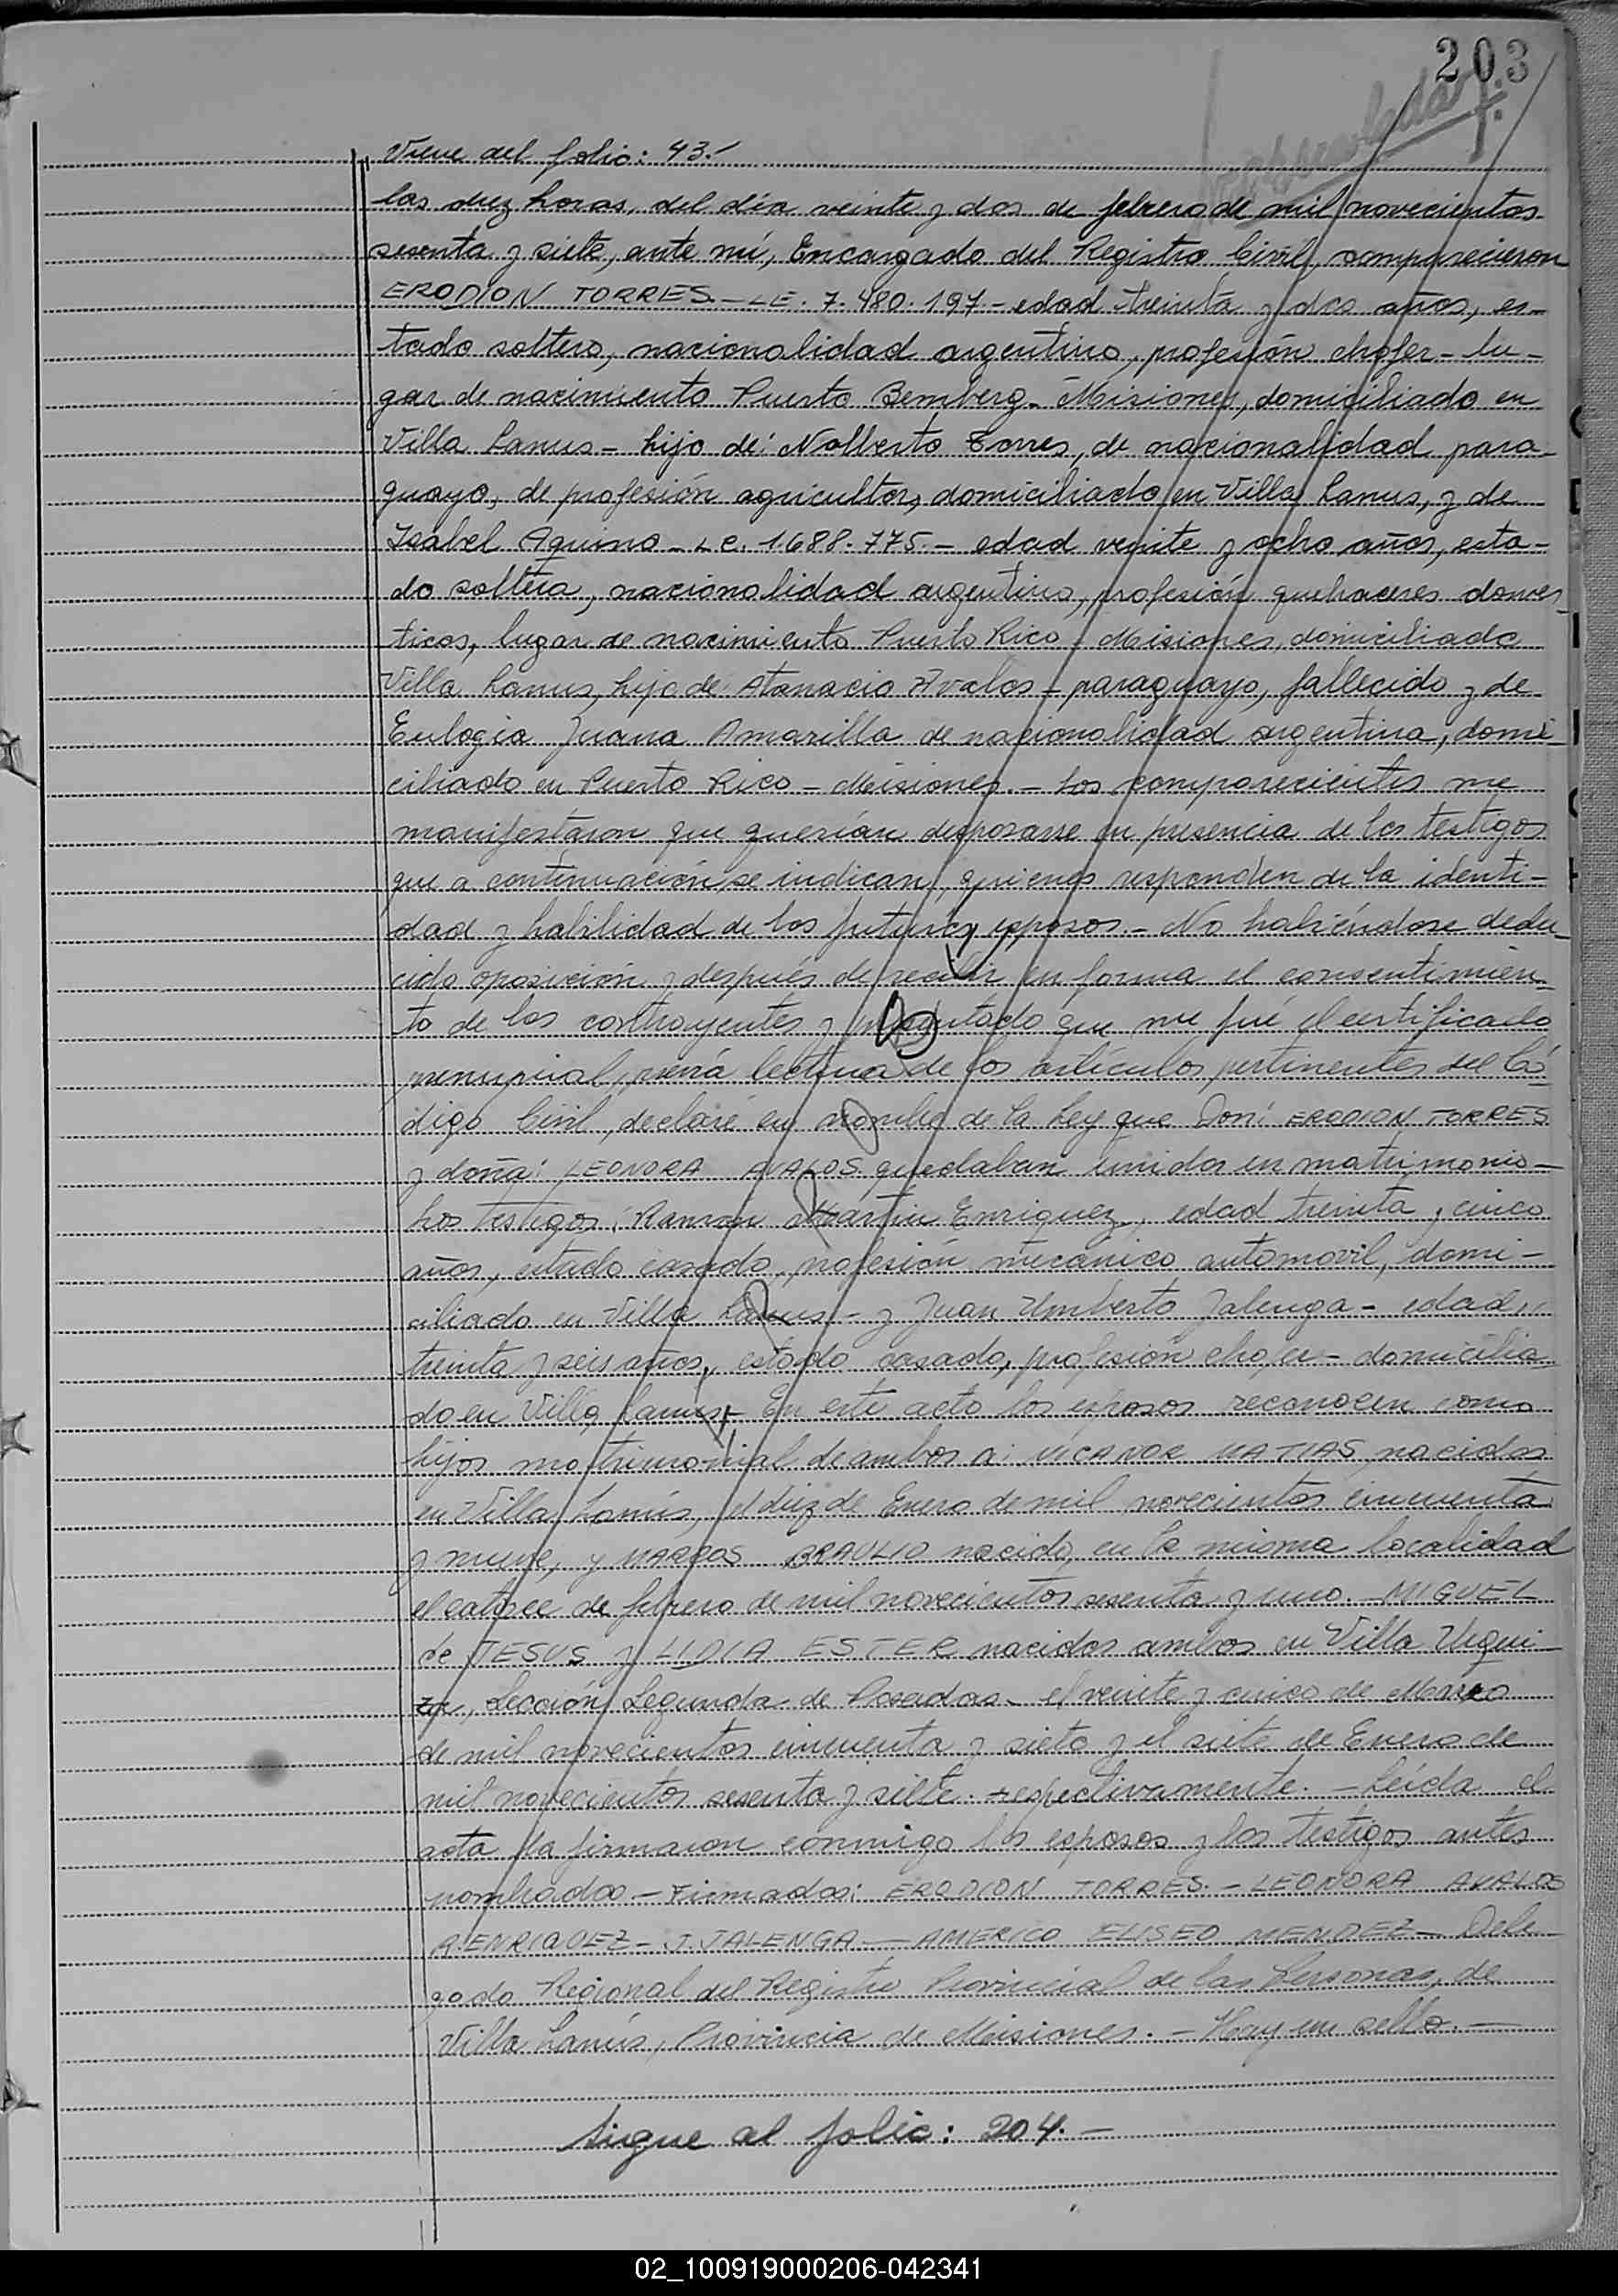 203
Viene del folio: 43.-
las diez horas, del día veinte y dos de febrero de mil novecientos
sesenta y siete, ante mí, Encargado del Registro Civil, comparecieron
ERODION TORRES.- LE. 7.480.197.- edad treinta y dos años, es-
tado soltero, nacionalidad argentino, profesión chofer - lu-
gar de nacimiento Puerto Bemberg - Misiones, domiciliado en
Villa Lanus - hijo de: Nolberto Torres, de nacionalidad para-
guayo, de profesión agricultor, domiciliado en Villa Lanus, y de
Isabel Aquino - L.C. 1.688.775.- edad veinte y ocho años, esta-
do soltera, nacionalidad argentina, profesión quehaceres domés-
ticos, lugar de nacimiento Puerto Rico - Misiones, domiciliada
Villa Lanus, hija de: Atanacio Avalos - paraguayo, fallecido y de
Eulogia Juana Amarilla de nacionalidad argentina, domi-
ciliado en Puerto Rico - Misiones.- Los comparecientes me
manifestaron que querían desposarse en presencia de los testigos
que a continuación se indican, quienes responden de la identi-
dad y habilidad de los futuros esposos.- No habiéndose dedu-
cido oposición y después de recibir en forma el consentimien-
to de los contrayentes y presentado que me fué el certificado
prenupcial, previa lectura de los artículos pertinentes del Có-
digo Civil, declaré en nombre de la Ley que Don: ERODION TORRES
y doña: LEONORA AVALOS quedaban unidos en matrimonio -
Los testigos: Ramon Martin Enriquez, edad treinta y cinco
años, estado casado, profesión mecánico automovil, domi-
ciliado en Villa Lanus - y Juan Umberto Jalenga - edad
treinta y seis años, estado casado, profesión chofer - domicilia-
do en Villa Lanus.- En este acto los esposos reconocen como
hijos matrimonial de ambos a: NICANOR MATIAS, nacidos
en Villa Lanús, el diez de Enero de mil novecientos cincuenta
y nueve, y MARCOS BRAULIO nacido, en la misma localidad
el catorce de febrero de mil novecientos sesenta y uno.- MIGUEL
de JESUS y LIDIA ESTER nacidos ambos en Villa Urqui-
za, Sección Segunda de Posadas - el veinte y cinco de Marzo
de mil novecientos cincuenta y siete y el siete de Enero de
mil novecientos sesenta y siete. respectivamente.- Leída el
acta la firmaron conmigo los esposos y los testigos antes
nombrados - Firmados: ERODION TORRES.- LEONORA AVALOS
R. ENRIQUEZ - J. JALENGA - AMERICO ELISEO MENDEZ - Dele-
gado Regional del Registro Provincial de las Personas, de
Villa Lanús, Provincia de Misiones.- Hay un sello.-
Sigue al folio: 204.-
02_100919000206-042341